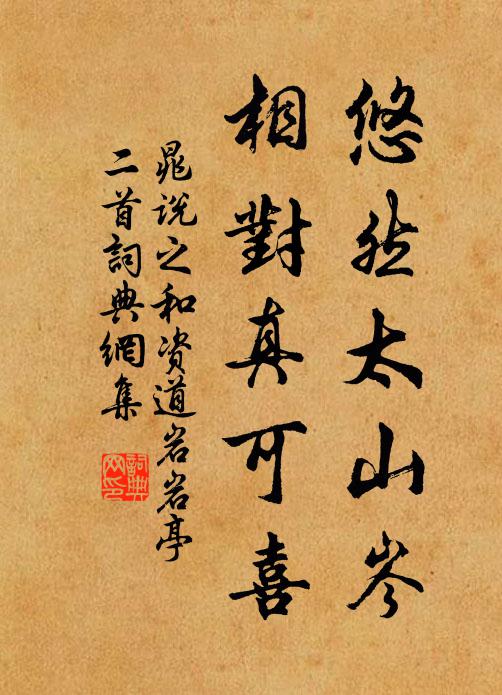 悠然太山岑
相對真可喜
晁說之和資道岩岩亭
二首詞典網集
詞典
网印